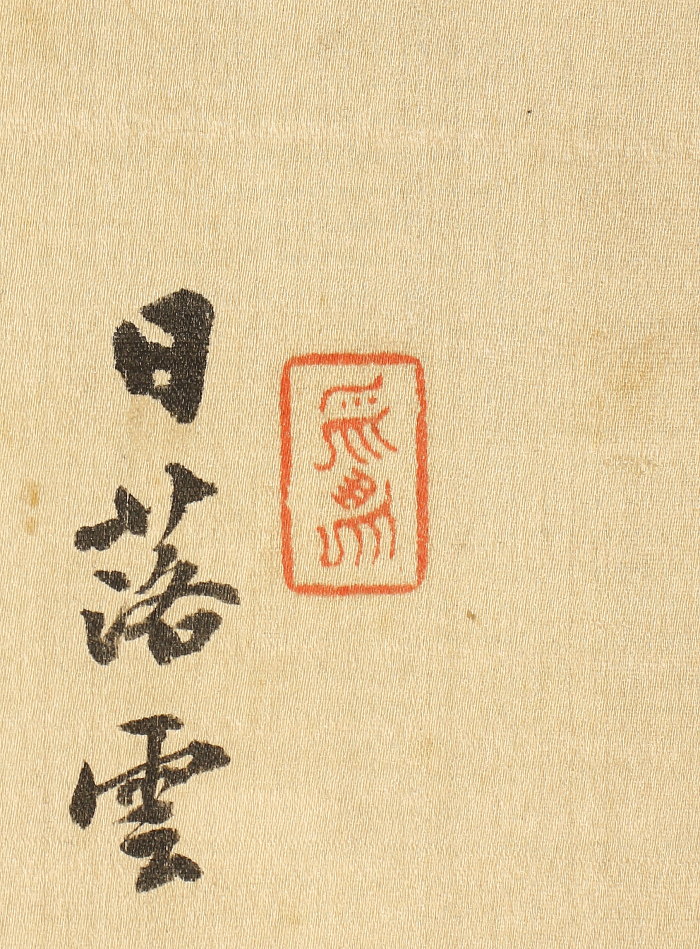 日落雲